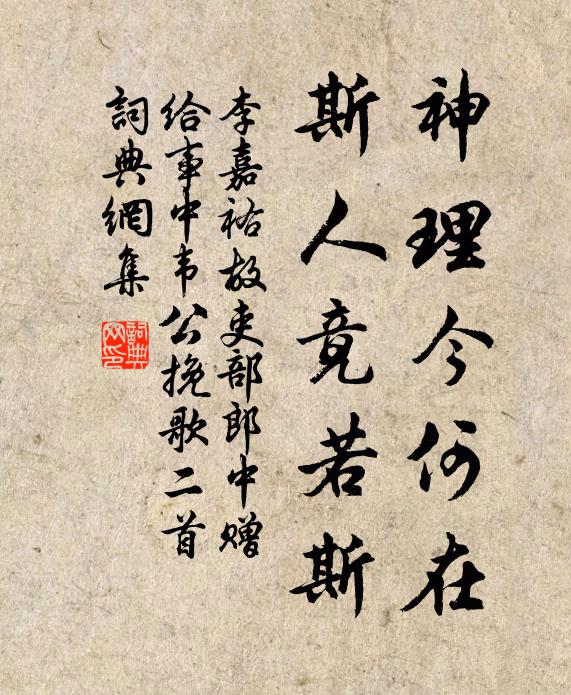 神理今何在
斯人竟若斯
李嘉祐故吏部郎中赠
给事中韦公挽歌二首
詞典網集
詞典網印